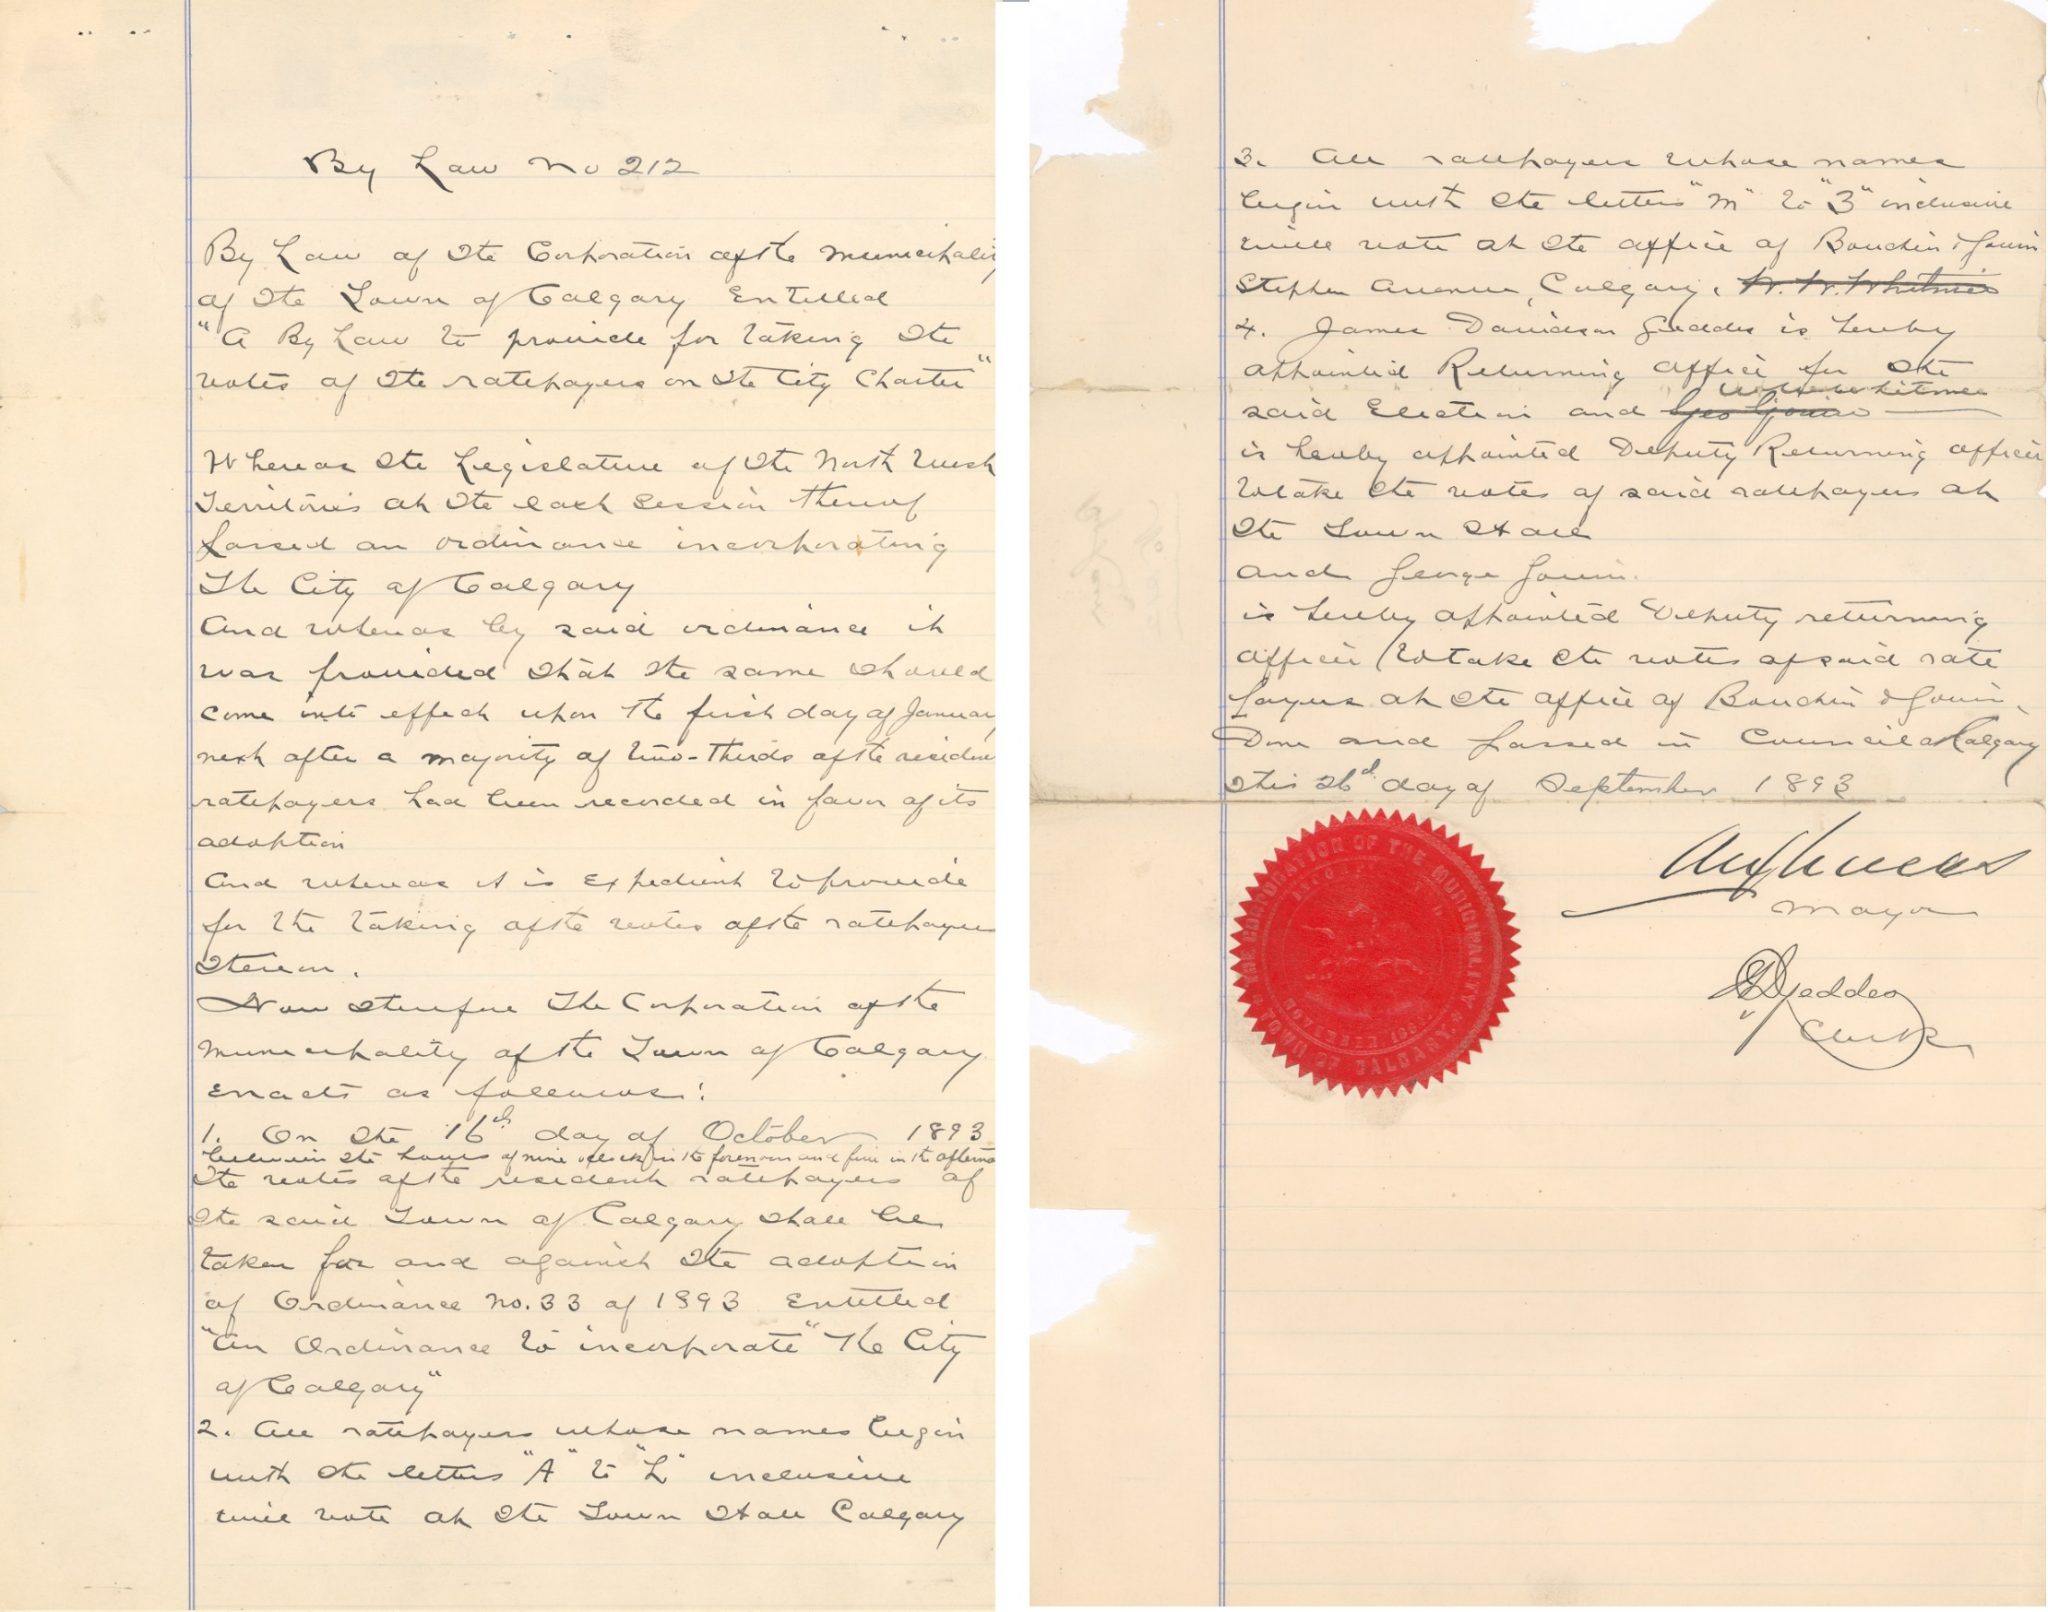 By Law No 212
By Law of the Corporation of the Municipality
of the Town of Calgary Entitled
"A By Law to provide for taking the
votes of the ratepayers on the City Charter"
Whereas the Legislature of the North West
Territories at the last Session thereof
passed an ordinance incorporating
The City of Calgary
And whereas by said ordinance it
was provided that the same should
come into effect upon the first day of January
next after a majority of two-thirds of the resident
ratepayers had been recorded in favor of its
adoption
And whereas it is Expedient to provide
for the taking of the votes of the ratepayers
thereon.
Now therefore The Corporation of the
Municipality of the Town of Calgary
Enacts as follows:
1. On the 16th day of October 1893
between the hours of nine oclock in the forenoon and five in the afternoon
the votes of the resident ratepayers of
the said Town of Calgary shall be
taken for and against the adoption
of Ordinance No. 33 of 1893 Entitled
"An Ordinance to incorporate "The City
of Calgary"
2. All ratepayers whose names begin
with the letters "A" to "L" inclusive
will vote at the Town Hall Calgary
3. All ratepayers whose names
begin with the letters "M" to "Z" inclusive
will vote at the office of Bouchin & Gouin
Stephen Avenue, Calgary. W. W. Whitmee
4. James Davidson Geddes is hereby
appointed Returning Officer for the
said Election and Geo Gouin Whitmee
is hereby appointed Deputy Returning officer
to take the votes of said ratepayers at
the Town Hall
and George Gouin.
is hereby appointed Deputy returning
officer to take the votes of said rate
payers at the office of Bouchin & Gouin.
Done and passed in Council at Calgary
this 26d day of September 1893
THE CORPORATION OF THE MUNICIPALITY
TOWN OF CALGARY
NOVEMBER
Mayor
Geddes
Clerk